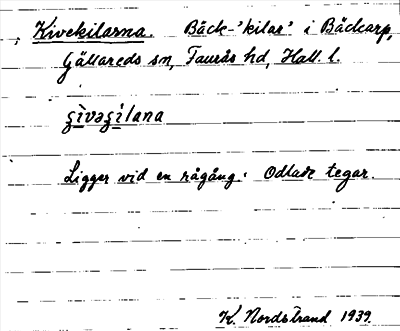 Kivekilarna. Bäck-'kilar' i Bäckarp,
Gällareds sn, Faurås hd, Hall. l.
ʒìvəʒílana
Ligger vid en rågång. Odlade tegar.
K. Nordstrand 1939.